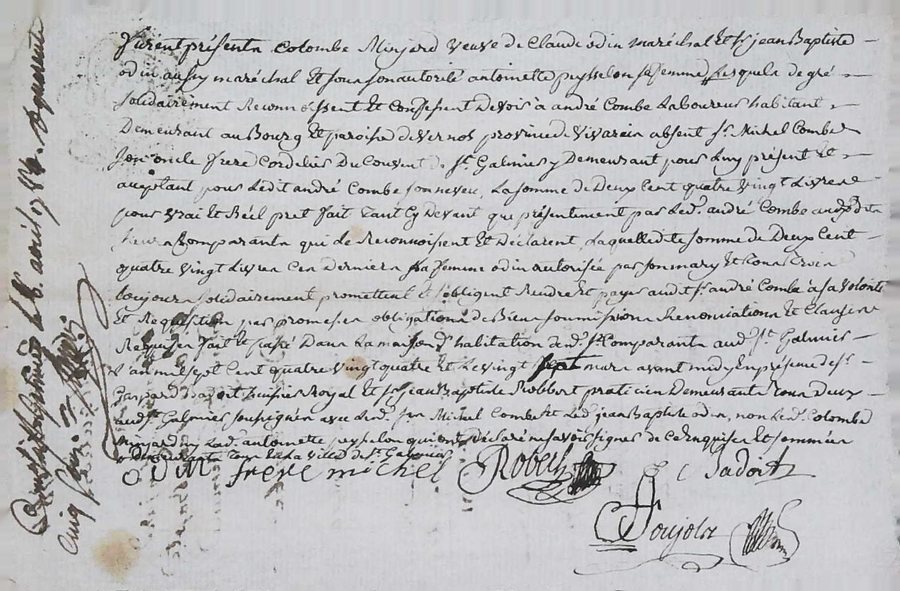 furent présents Colombe Minjard veuve de Claude odin maréchal et sr jean Baptiste
odin aussy maréchal et sous son autorité antoinette peysselon sa femme lesquels de gré
solidairement Reconnoissent et Confessent Devoir à andré Combe Laboureur habitant
Demeurant au Bourg et paroisse de vernos province de vivarein absent fr. Michel Combe
son oncle frere Cordelier Du Couvent de St. Galmier y Demeurant pour Luy présent et
aceptant pour Ledit andré Combe son neveu, La somme de Deux Cent quatre vingt Livres
pour vrai et Réel pret fait tant Cy Devant que présentement par Led. andré Combe auxd. dits
Comparants qui Le Reconnoissent et Déclarent, Laquelle dite somme de Deux Cent
quatre vingt Livres Ces Derniers La femme odin autorisée par son mary et tous trois
toujours solidairement promettent et s'obligent Rendre et payer audit sr. andré Combe à sa volonté
et Requisition par promesses obligations de Biens soumissions Renonciations et Clauses
Requises fait et passé Dans La maison d'habitation des. srs Comparants aud. St. Galmier
L'an mil sept Cent quatre vingt quatre et Le vingt sept mars avant midy En présence de sr.
Gaspard Sadot huissier Royal et sr jean Baptiste Robbert praticien Demeurants tous Deux
aud. St. Galmier soussignés avec Led. fr. Michel Combe et Led. jean Baptiste odin, non Led. Colombe
Minjard ny Led. antoinette peysselon qui ont déclaré ne savoir signer de Ce Enquises et sommées
Demeurants tous en La ville de St. Galmier
ODIN frere michel Robert Sadot
Poujolz
Controlé à St. Galmier le 6. avril 1784.
Cinq